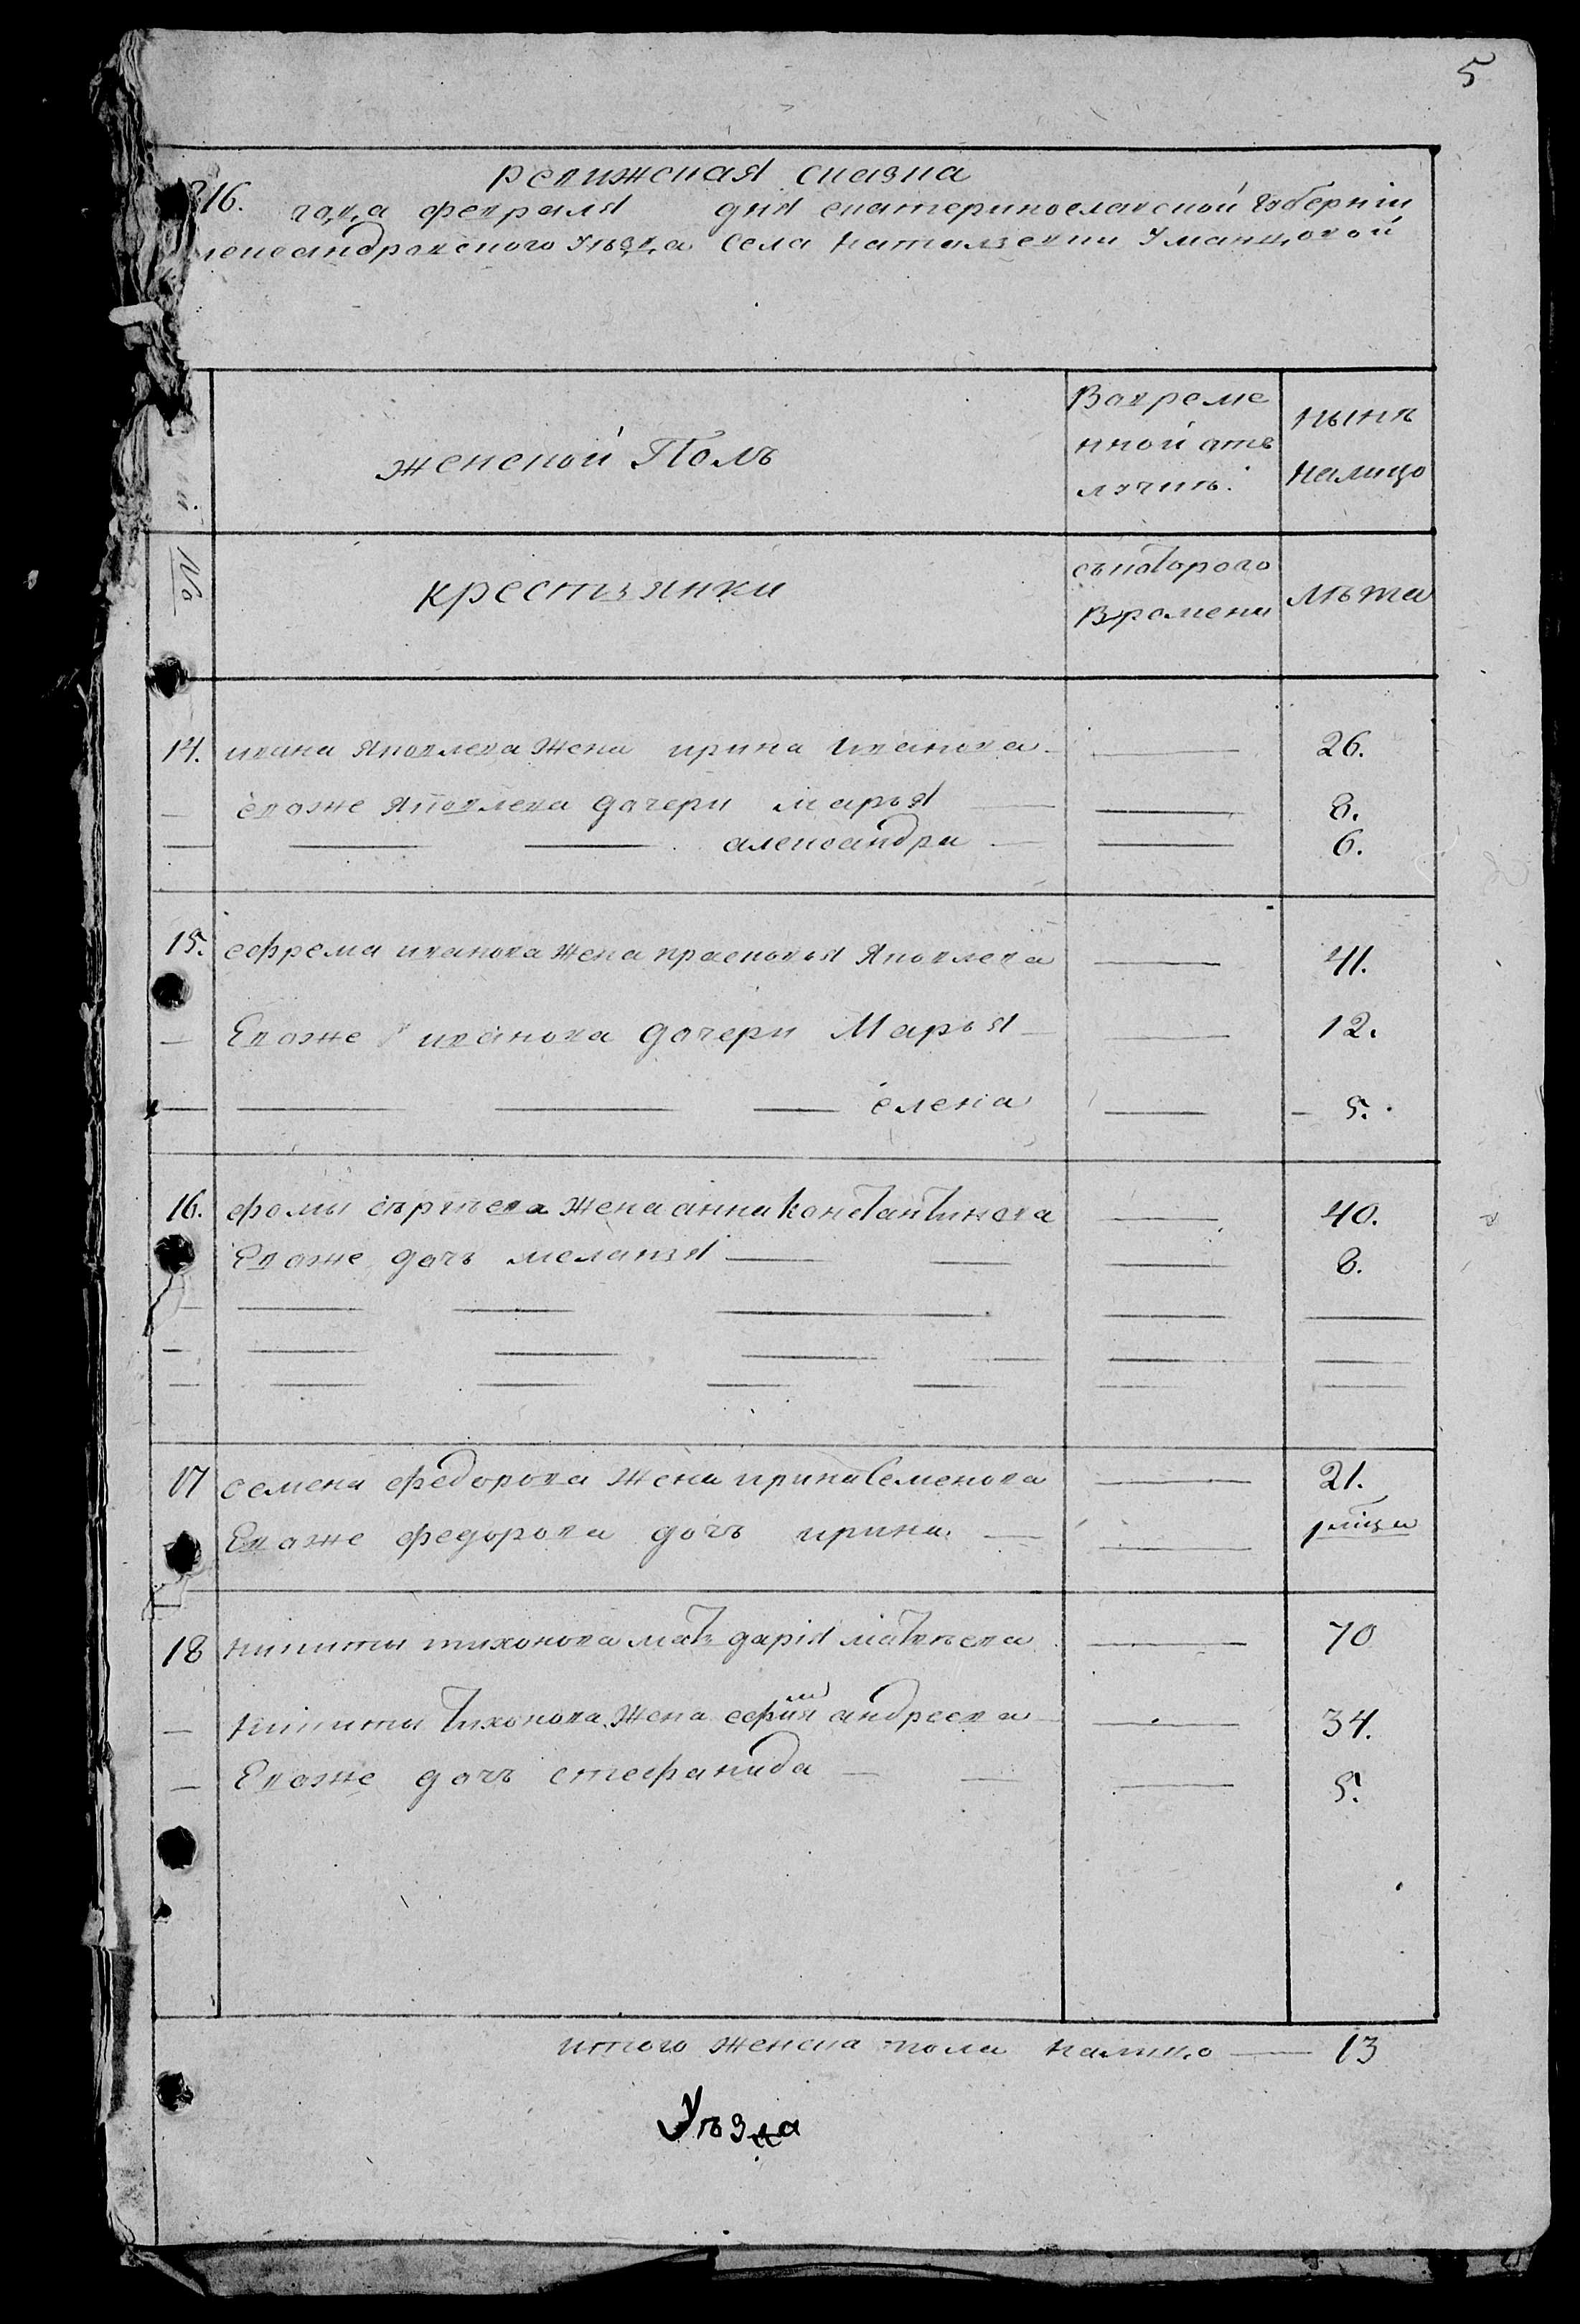 5
ревижская сказка
816. года февраля дня екатеринославской губернiи
лександровского уѣзда Села натальевки Уманцовой
женской Полъ
Вовреме
нной отъ
лучкѣ.
нынѣ
налицо
№
крестьянки
съкоторого
Времени
лѣта
14. ивана Яковлева жена ирина иванова 26.
— евоже Яковлева дочери марья 8.
александра 6.
15. ефрема иванова жена прасковья Яковлева 41.
— Евоже иванова дочери Марья 12.
елена 5.
16. фомы сѣргѣева жена анна константинова 40.
Евоже дочь меланья 8.
17 семена федорова жена ирина Семенова 21.
Евоже федорова дочь ирина
18 никиты тихонова мать дарiя матвѣева 70
— никиты тихонова жена андреева 34.
— Евоже дочь стефанида 5.
итого женска пола налицо — 13
Уѣзда